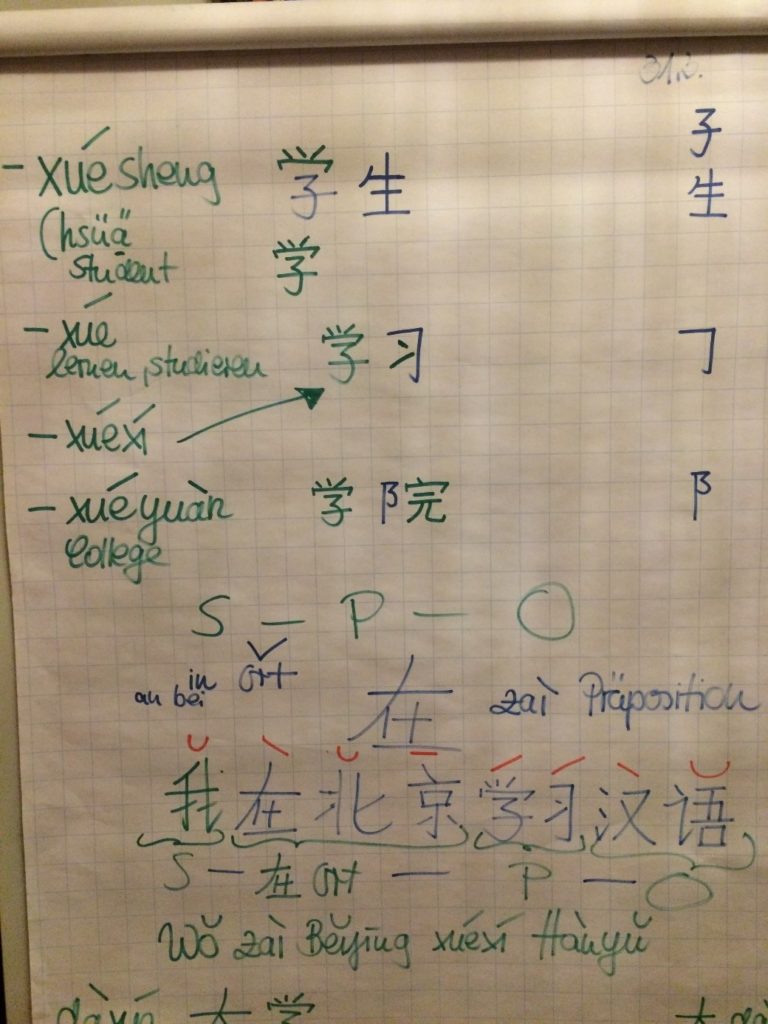 31.8.
子
- xuésheng 学生 生
(hsüä
Student 学
- xué
lernen, studieren 学习 ㇆
- xuéxí
- xuéyuàn 学阝完 阝
College
S — P — O
an bei in Ort 在 zaì Präposition
我在北京学习汉语
S — 在 Ort — P — O
Wǒ zaì Beǐjīng xuéxí Hànyǔ
大学
大